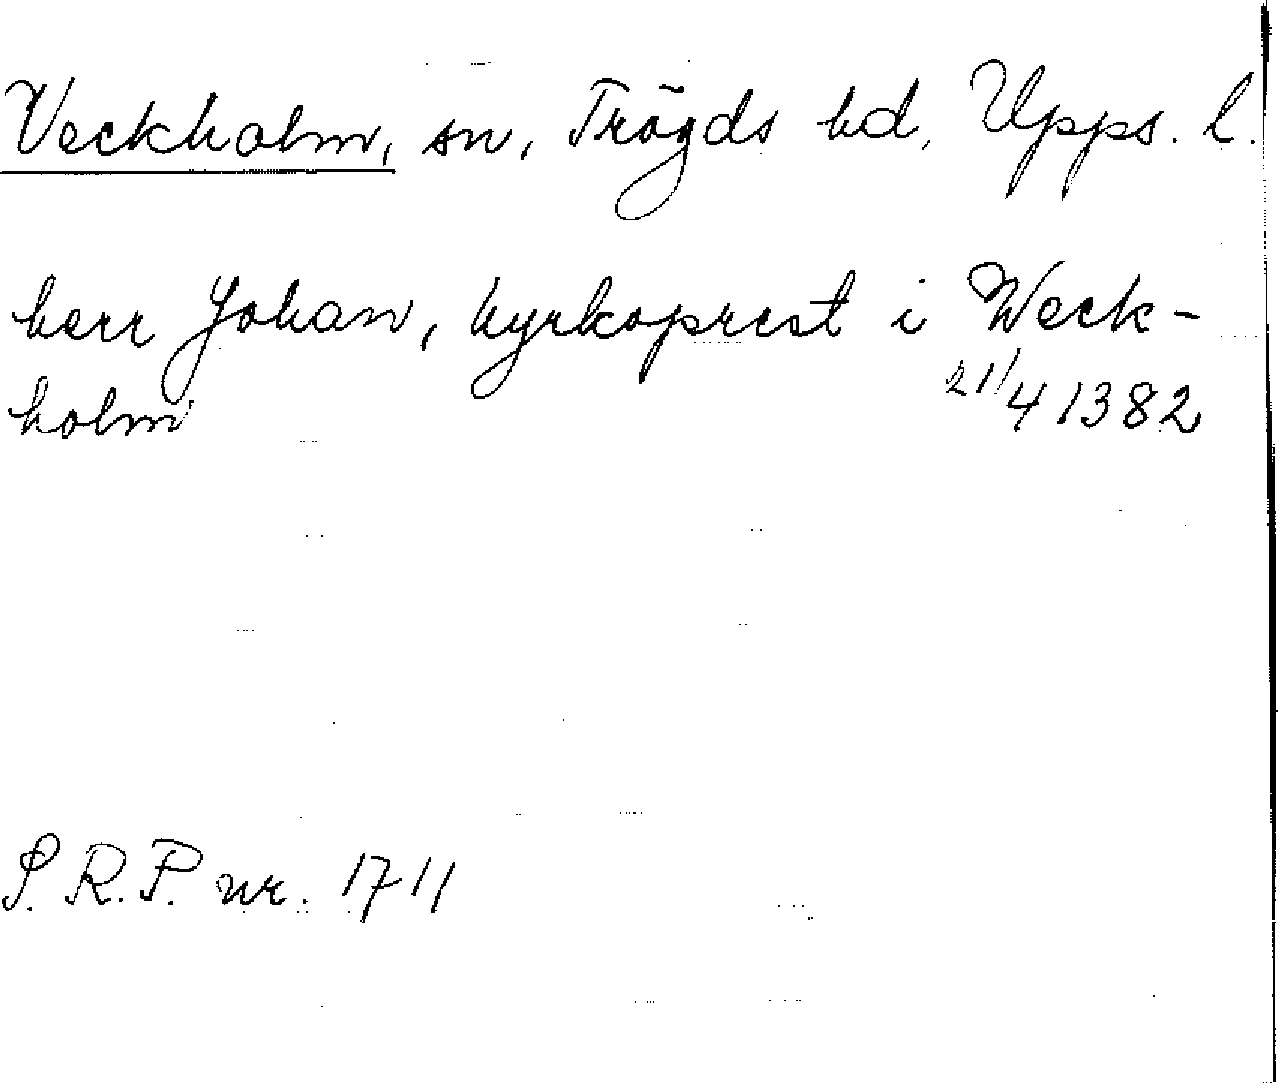 Veckholm, sn, Trögds hd, Upps. l.
herr Johan, kyrkoprest i Weck-
holm 21/4 1382
S. R. P. nr. 1711